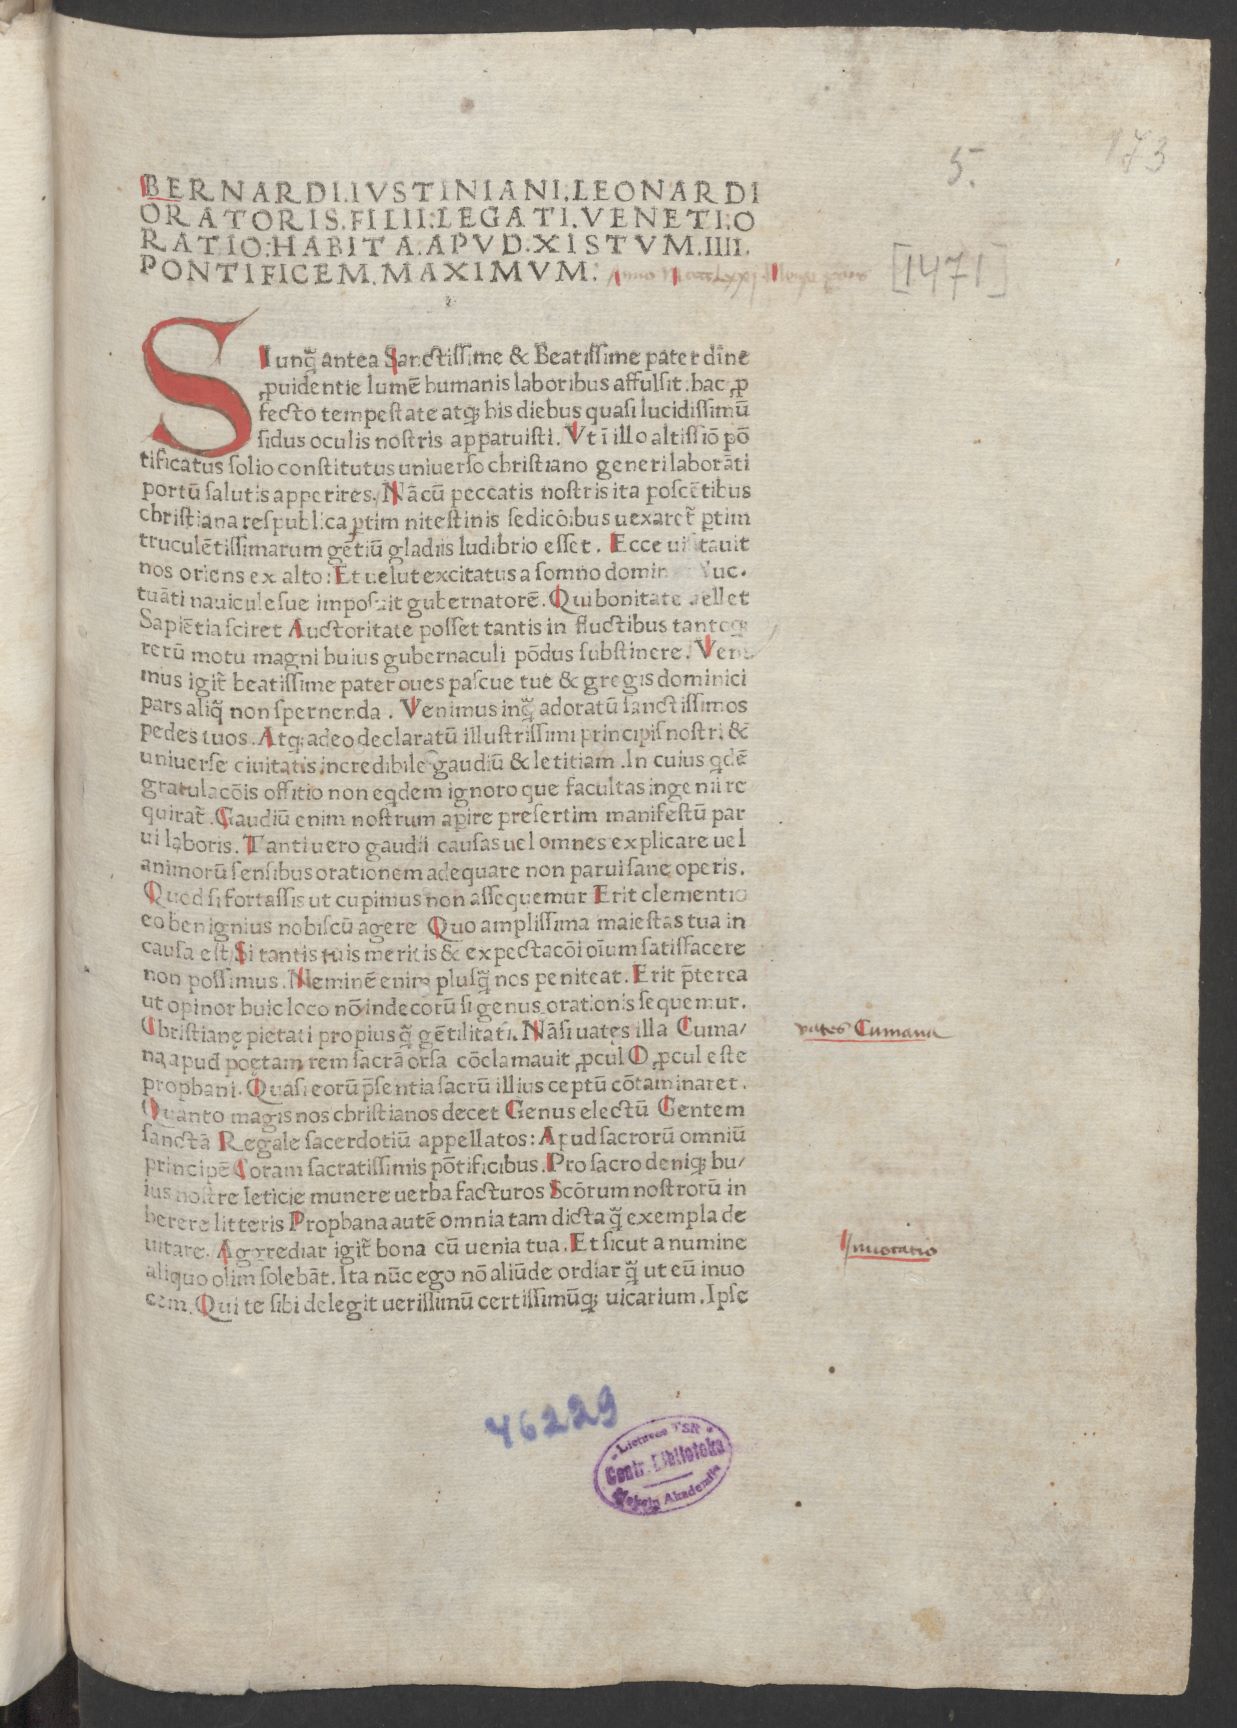 173
5.
BERNARDI.IVSTINIANI.LEONARDI
ORATORIS.FILII:LEGATI.VENETI:O
RATIO:HABITA.APVD.XISTVM.IIII.
PONTIFICEM.MAXIMVM: Anno
[1471]
SI unq̃ antea Sanctissime & Beatissime pater diīne
ꝓuidentie lumē humanis laboribus affulsit.hac ꝓ
fecto tempestate atq; his diebus quasi lucidissimū
sidus oculis nostris apparuisti. Vt ī illo altissiō pō
tificatus solio constitutus universo christiano generi laborāti
portū salutis apperires. Nā cū peccatis nostris ita poscētibus
christiana respublica ꝑtim nitestinis sedicōibus uexaret̃ ꝑtim
truculētissimarum gētiū gladiis ludibrio esset. Ecce uisitauit
nos oriens ex alto: Et uelut excitatus a somno fluc.
tuāti nauicule sue imposuit gubernatorē. Qui bonitate uellet
Sapiētia sciret Auctoritate posset tantis in fluctibus tantoq;
rerū motu magni huius gubernaculi pōdus substinere. Veni
mus igit̃ beatissime pater oues pascue tue & gregis dominici
pars aliq̃ non spernenda. Venimus inq̃ adoratū sanctissimos
pedes tuos. Atq; adeo declaratū illustrissimi principis nostri &
universe ciuitatis incredibile gaudiū & letitiam. In cuius qdē
gratulacōis offitio non eqdem ignoro que facultas ingenii re
quirat̃. Gaudiū enim nostrum aperire presertim manifestū par
ui laboris. Tanti uero gaudii causas uel omnes explicare uel
animorū sensibus orationem adequare non parui sane operis.
Quod si fortassis ut cupimus non assequemur Erit clementio
eo benignius nobiscū agere Quo amplissima maiestas tua in
causa est Si tantis tuis meritis & expectacōi oīum satisfacere
non possimus. Neminē enim plusq̃ nos peniteat. Erit p̄terea
ut opinor huic loco nō indecorū si genus orationis sequemur.
Christiane pietati propius q̃ gētilitati. Nā si uates illa Cuma/
vates Cumana
na apud poetam rem sacrā orsa cōclamauit ꝓcul O ꝓcul este
prophani. Quasi eorū p̄sentia sacrū illius ceptū cōtaminaret.
Quanto magis nos christianos decet Genus electū Gentem
sanctā Regale sacerdotiū appellatos: Apud sacrorū omniū
principē Coram sacratissimis pōtificibus. Pro sacro deniq; hu/
ius nostre leticie munere uerba facturos Scōrum nostrorū in
herere litteris Prophana autē omnia tam dicta q̃ exempla de
uitare. Aggrediar igit̃ bona cū uenia tua. Et sicut a numine
Inuocatio
aliquo olim solebāt. Ita nūc ego nō aliūde ordiar q̃ ut eū inuo
cem. Qui te sibi delegit uerissimū certissimūq; uicarium. Ipse
46229
Lietuvos TSR
Centr. Biblioteka
Mokslų Akademija